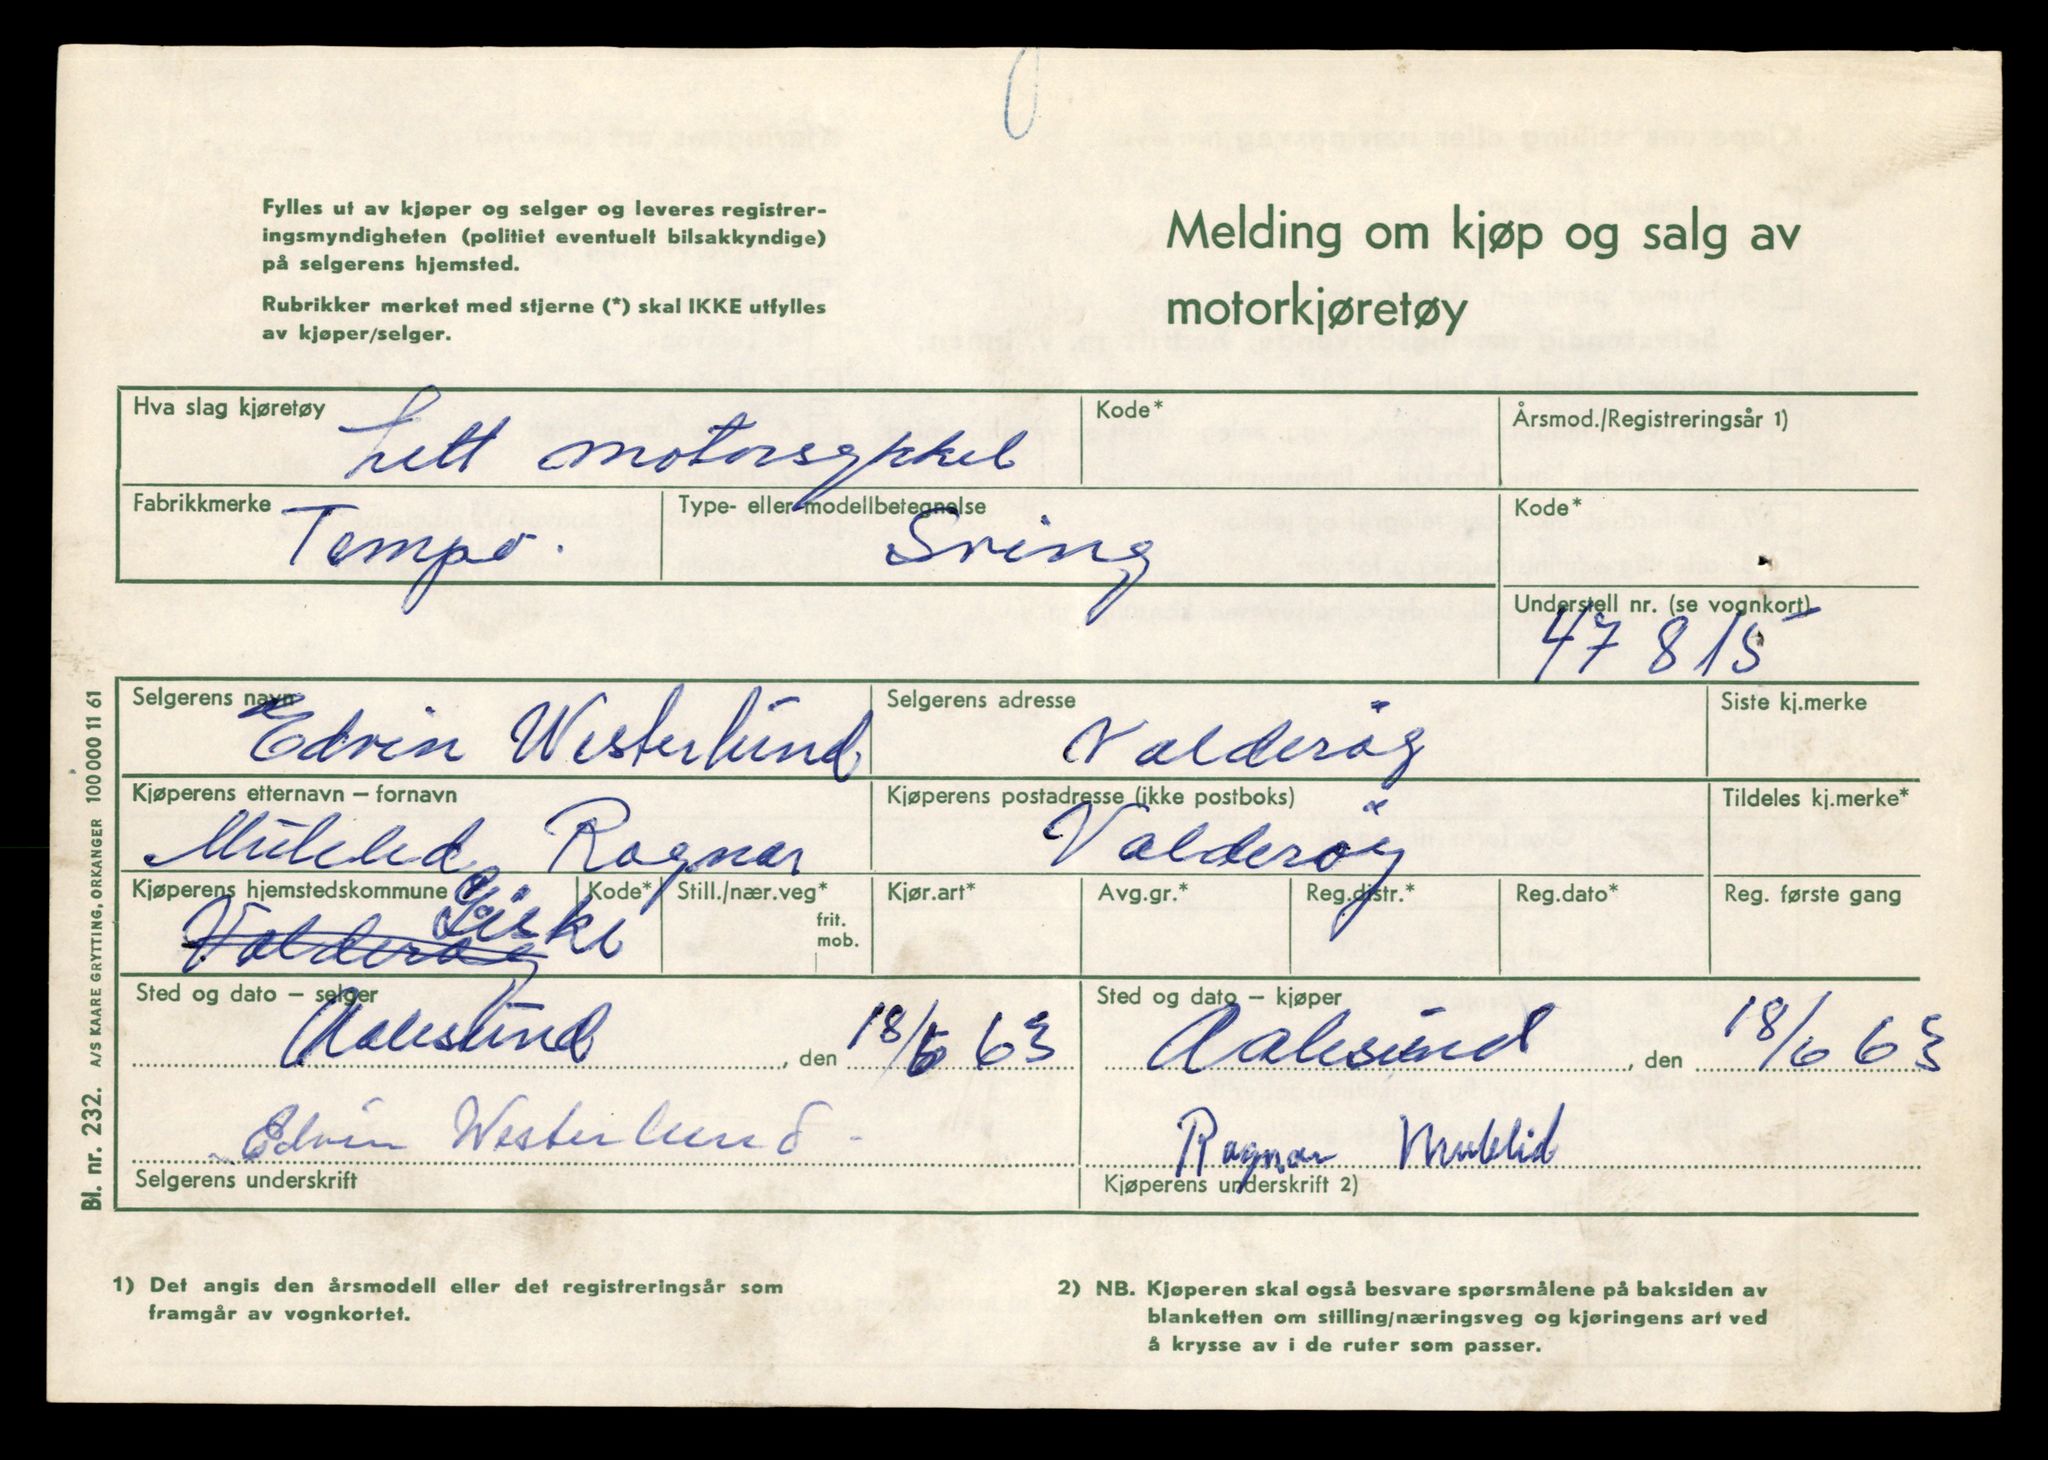 Fylles ut av kjøper og selger og leveres registrer-
ingsmyndigheten (politiet eventuelt bilsakkyndige)
på selgerens hjemsted.
Rubrikker merket med stjerne (*) skal IKKE utfylles
av kjøper/selger.
Melding om kjøp og salg av
motorkjøretøy
Hva slag kjøretøy Lett motorsykkel
Kode*
Årsmod./Registreringsår 1)
Fabrikkmerke Tempo.
Type- eller modellbetegnelse Sving
Kode*
Understell nr. (se vognkort)
47 815
Selgerens navn Edvin Westerlund
Selgerens adresse Valderöy
Siste kj.merke
Kjøperens etternavn – fornavn
Muleled, Ragnar
Kjøperens postadresse (ikke postboks)
Valderöy
Tildeles kj.merke*
Kjøperens hjemstedskommune Giske
Valderöy
Kode*
Still./nær.veg*
frit.
mob.
Kjør.art*
Avg.gr.*
Reg.distr.*
Reg.dato*
Reg. første gang
Sted og dato – selger
Aalesund, den 18/6 63
Sted og dato – kjøper
Aalesund, den 18/6 63
Edvin Westerlund
Selgerens underskrift
Ragnar Mulelid
Kjøperens underskrift 2)
Bl. nr. 232. A/S KAARE GRYTTING, ORKANGER 100 000 11 61
1) Det angis den årsmodell eller det registreringsår som
framgår av vognkortet.
2) NB. Kjøperen skal også besvare spørsmålene på baksiden av
blanketten om stilling/næringsveg og kjøringens art ved
å krysse av i de ruter som passer.